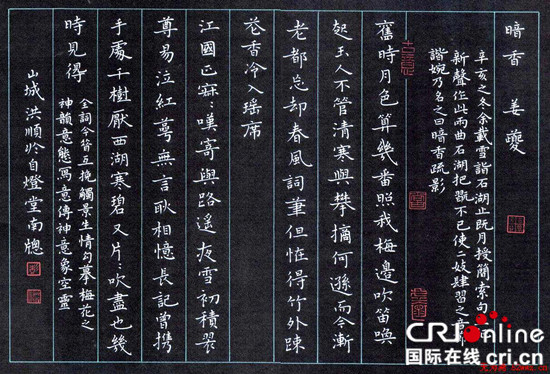 暗香 姜夔
辛亥之冬余載雪詣石湖止既月授簡索句
新聲作此兩曲石湖把翫不已使二妓肄習之
諧婉乃名之曰暗香疏影
舊時月色算幾番照我梅邊吹笛喚
起玉人不管清寒與攀摘何遜而今漸
老都忘却春風詞筆但怪得竹外踈
花香冷入瑶席
江國正寐〻嘆寄與路遥夜雪初積翠
尊易泣紅萼無言耿相憶長記曾携
手處千樹厭西湖寒碧又片〻吹盡也幾
時見得
全詞今昔互挽觸景生情句摹梅花之
神韻意態寫意傳神意象空靈
山城洪順於自燈堂南牕
CRI online
国际在线 cri.cn